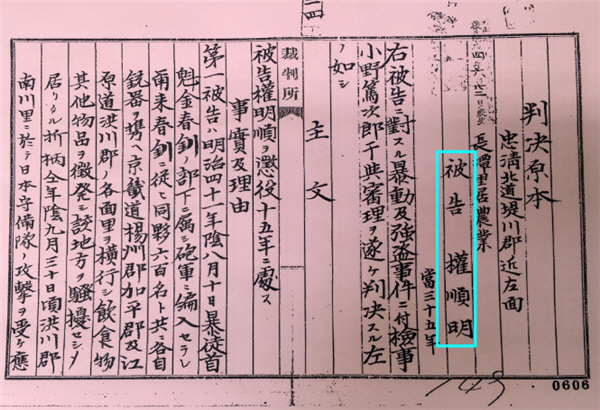 判決原本
忠清北道堤川郡近左面
長潭里居農業
被告權順明
當三十五年
右被告ニ對スル暴動及強盜事件ニ付檢事
小野篤次郎干與審理ヲ遂ケ判決スル左
ノ如シ
主文
裁判所
被告權明順ヲ懲役十五年ニ處ス
事實及理由
第一被告ハ明治四十一年陰八月十日暴徒首
魁金春釗ノ部下ニ屬シ砲軍ニ編入セラレ
爾来春釗ニ從ヒ同夥六百名ト共ニ各自
銃器ヲ携ヘ京畿道楊州郡加平郡及江
原道洪川郡ノ各面里ヲ横行シ飲食物
其他物品ヲ徴發シ該地方ヲ騷擾セシメ
居リタル折柄仝年陰九月三十日頃洪川郡
南川里ニ於テ日本守備隊ノ攻撃ヲ受ケ應
0606